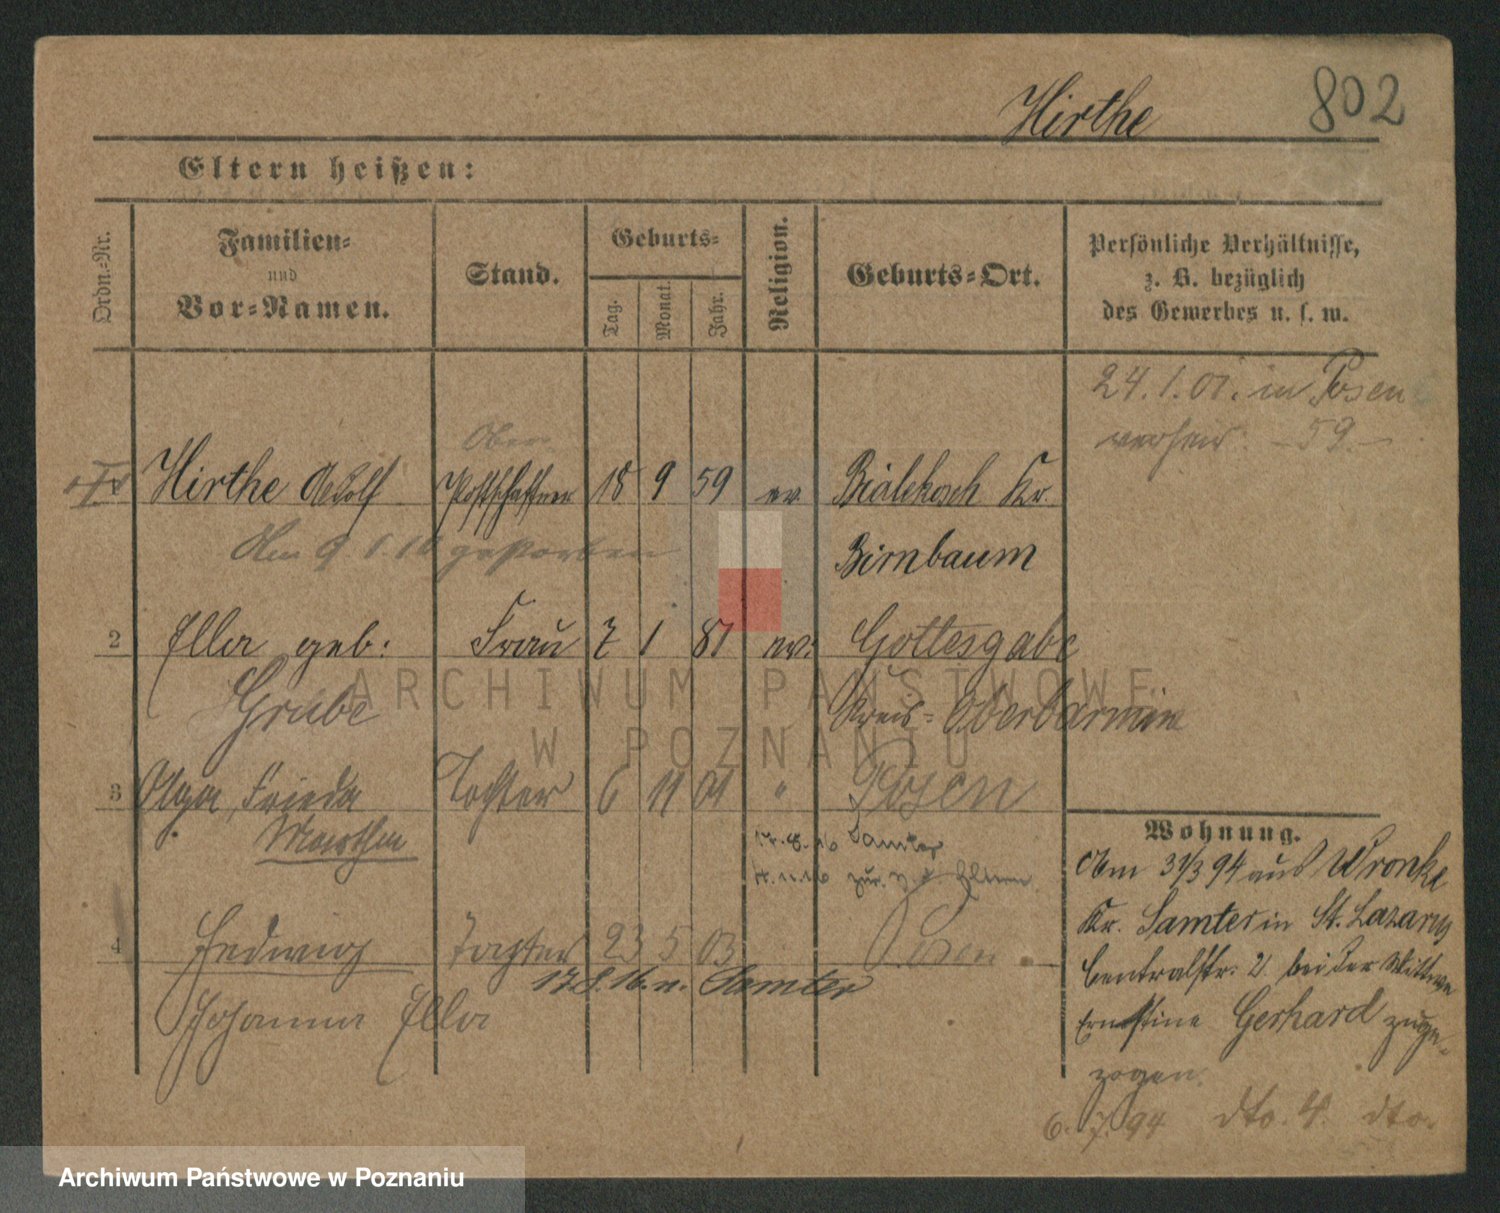 Hirthe 802
Eltern heißen:
Ordn.-Nr.
Familien-
und
Vor-Namen.
Stand.
Geburts-
Tag.
Monat.
Jahr.
Religion.
Geburts-Ort.
Persönliche Verhältnisse,
z. B. bezüglich
des Gewerbes u. s. w.
24.1.01. in Posen
verheir. - 59. -
Ober
Hirthe Adolf Postschaffner 18 9 59 ev Bialekosch Kr.
Birnbaum
Am 9.1.10 gestorben
2 Ella geb: Frau 7 1 81 ev: Gottesgabe
Grube Kreis- Oberbarnim
3 Olga, Frieda Tochter 6 11 01 " Posen
Martha
17.8.16 Samter
zur. z. d. Eltern
4 Hedwig Tochter 23 5 03 Posen
17.8.16. n. Samter
Johanna Ella
Wohnung.
Am 31/3 94 aus Wronke
Kr. Samter in St. Lazarus
Centralstr. 2 bei der Wittwe
Ernstine Gerhard zuge-
zogen.
6.7.94 dto. 4. dto.
ARCHIWUM PAŃSTWOWE
W POZNANIU
Archiwum Państwowe w Poznaniu